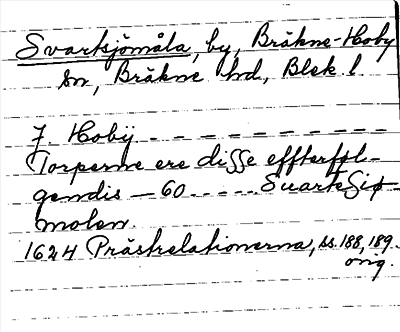 Svartsjömåla, by, Bräkne-Hoby
sn, Bräkne hd, Blek l
7 Hobÿ - - - - - - - - - -
Torperne ere disse effterføl-
gendis - 60 - - - - - SuarteSiø-
molen.
1624 Prästrelationerna, ss. 188, 189.
orig.